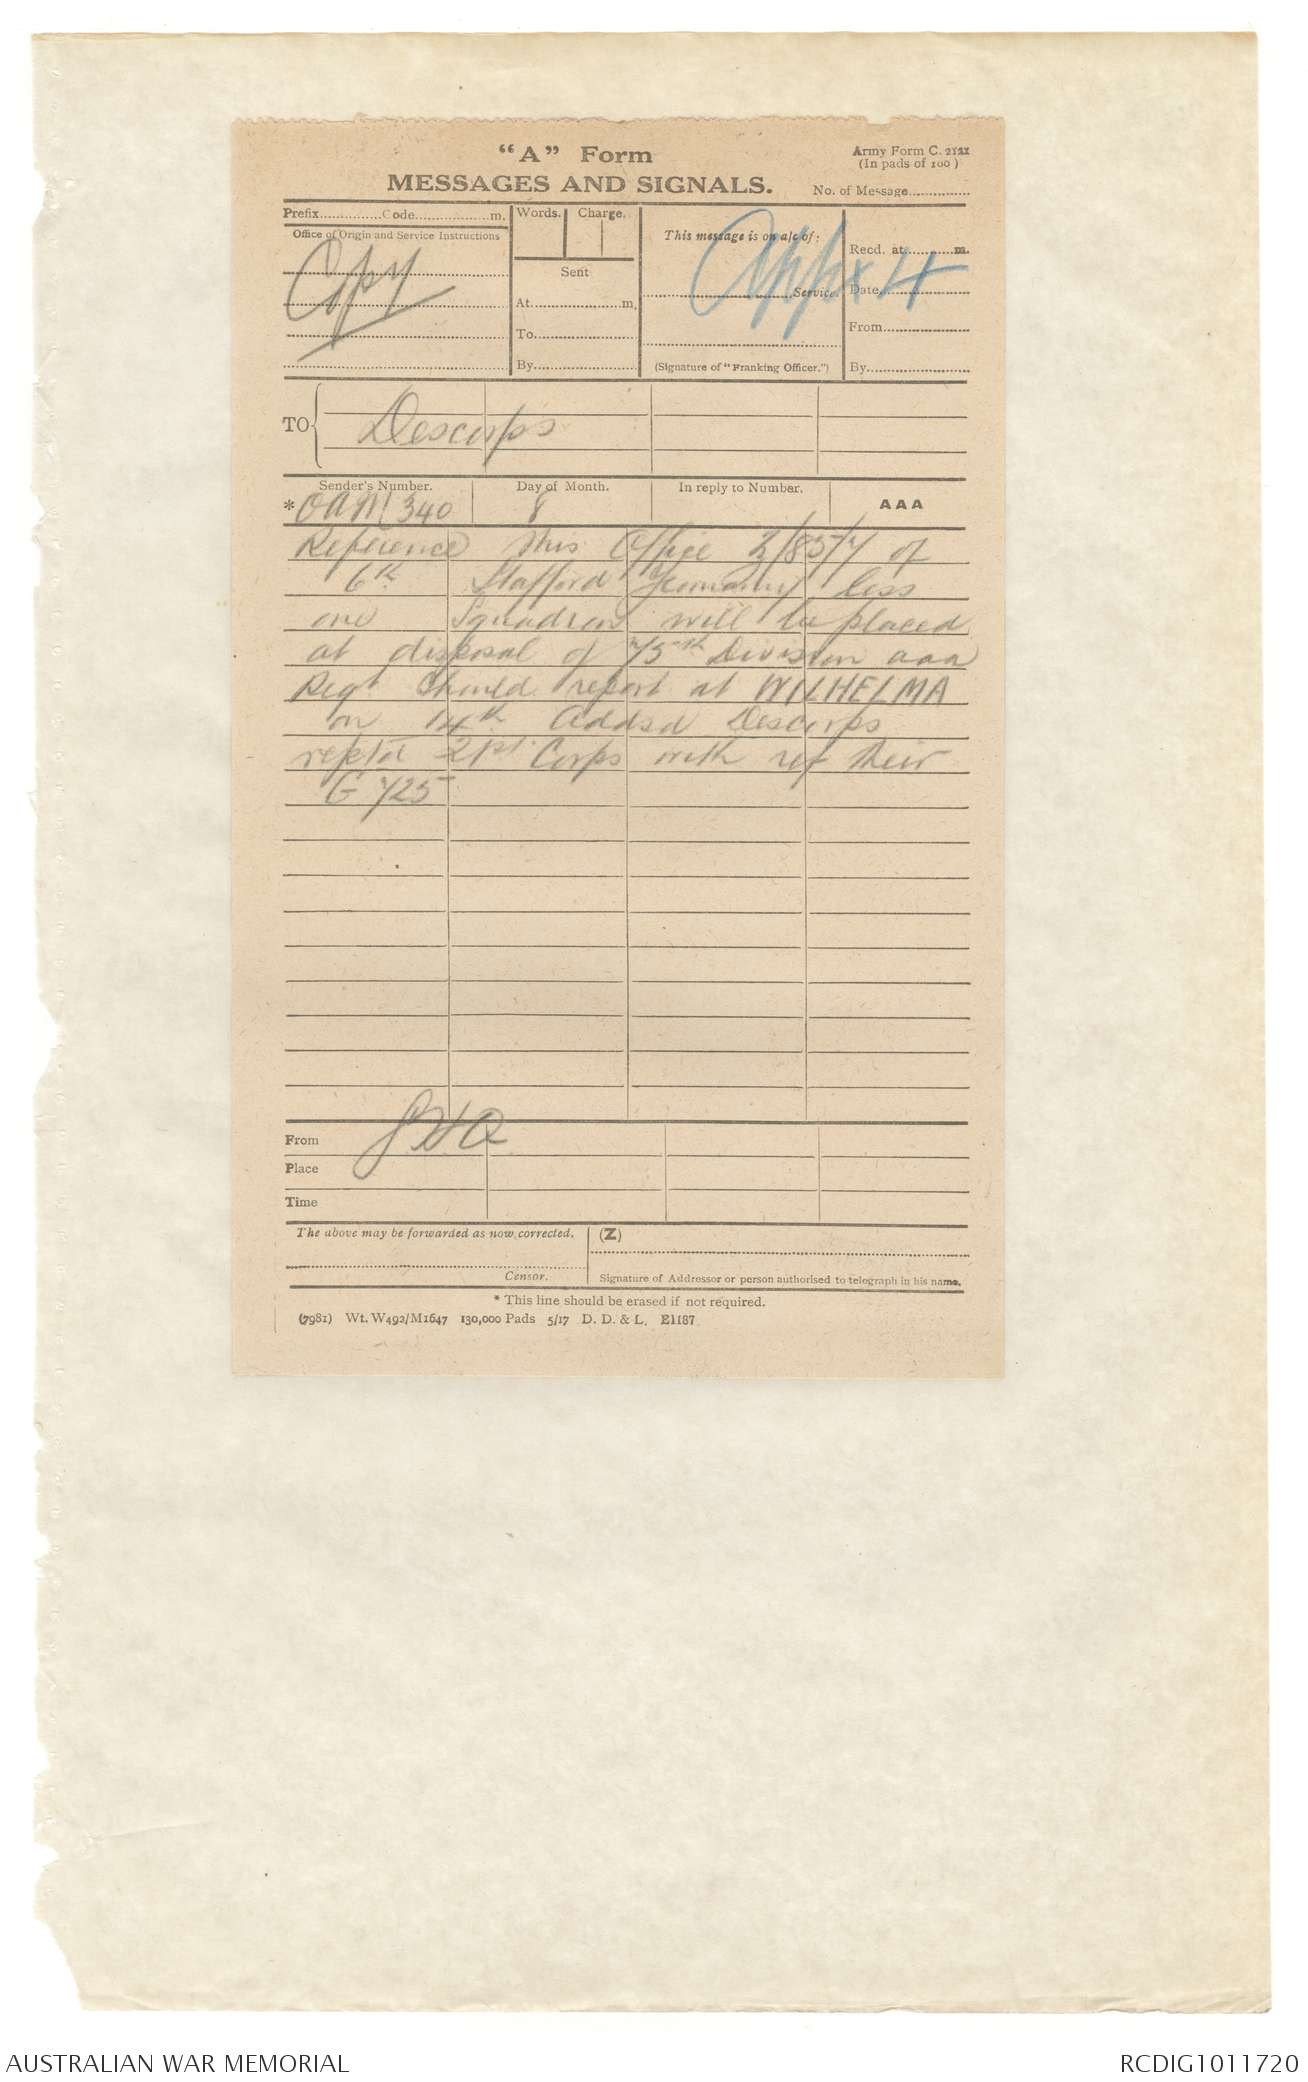 "A" Form
MESSAGES AND SIGNALS.
Army Form C. 2121
(In pads of 100)
No. of Message..............
Prefix..............Code................m.
Office of Origin and Service Instructions
Copy
Words. Charge.
Sent
At....................m.
To....................
By....................
This message is on a/c of:
Appx 4
....................Service.
(Signature of "Franking Officer.")
Recd. at............m.
Date....................
From....................
By....................
TO
Descorps
Sender's Number.
Day of Month.
In reply to Number.
AAA
* OAM 340
8
Reference this Office Z/85/7 of
6th Stafford Yeomanry less
one Squadron will be placed
at disposal of 75th Division aaa
Regt should report at WILHELMA
on 14th Addsd Descorps
reptd 21st Corps with ref their
G 725
From
GHQ
Place
Time
The above may be forwarded as now corrected.
(Z)
Censor.
Signature of Addressor or person authorised to telegraph in his name.
* This line should be erased if not required.
(7981) Wt. W492/M1647 130,000 Pads 5/17 D. D. & L. E1187
AUSTRALIAN WAR MEMORIAL
RCDIG1011720